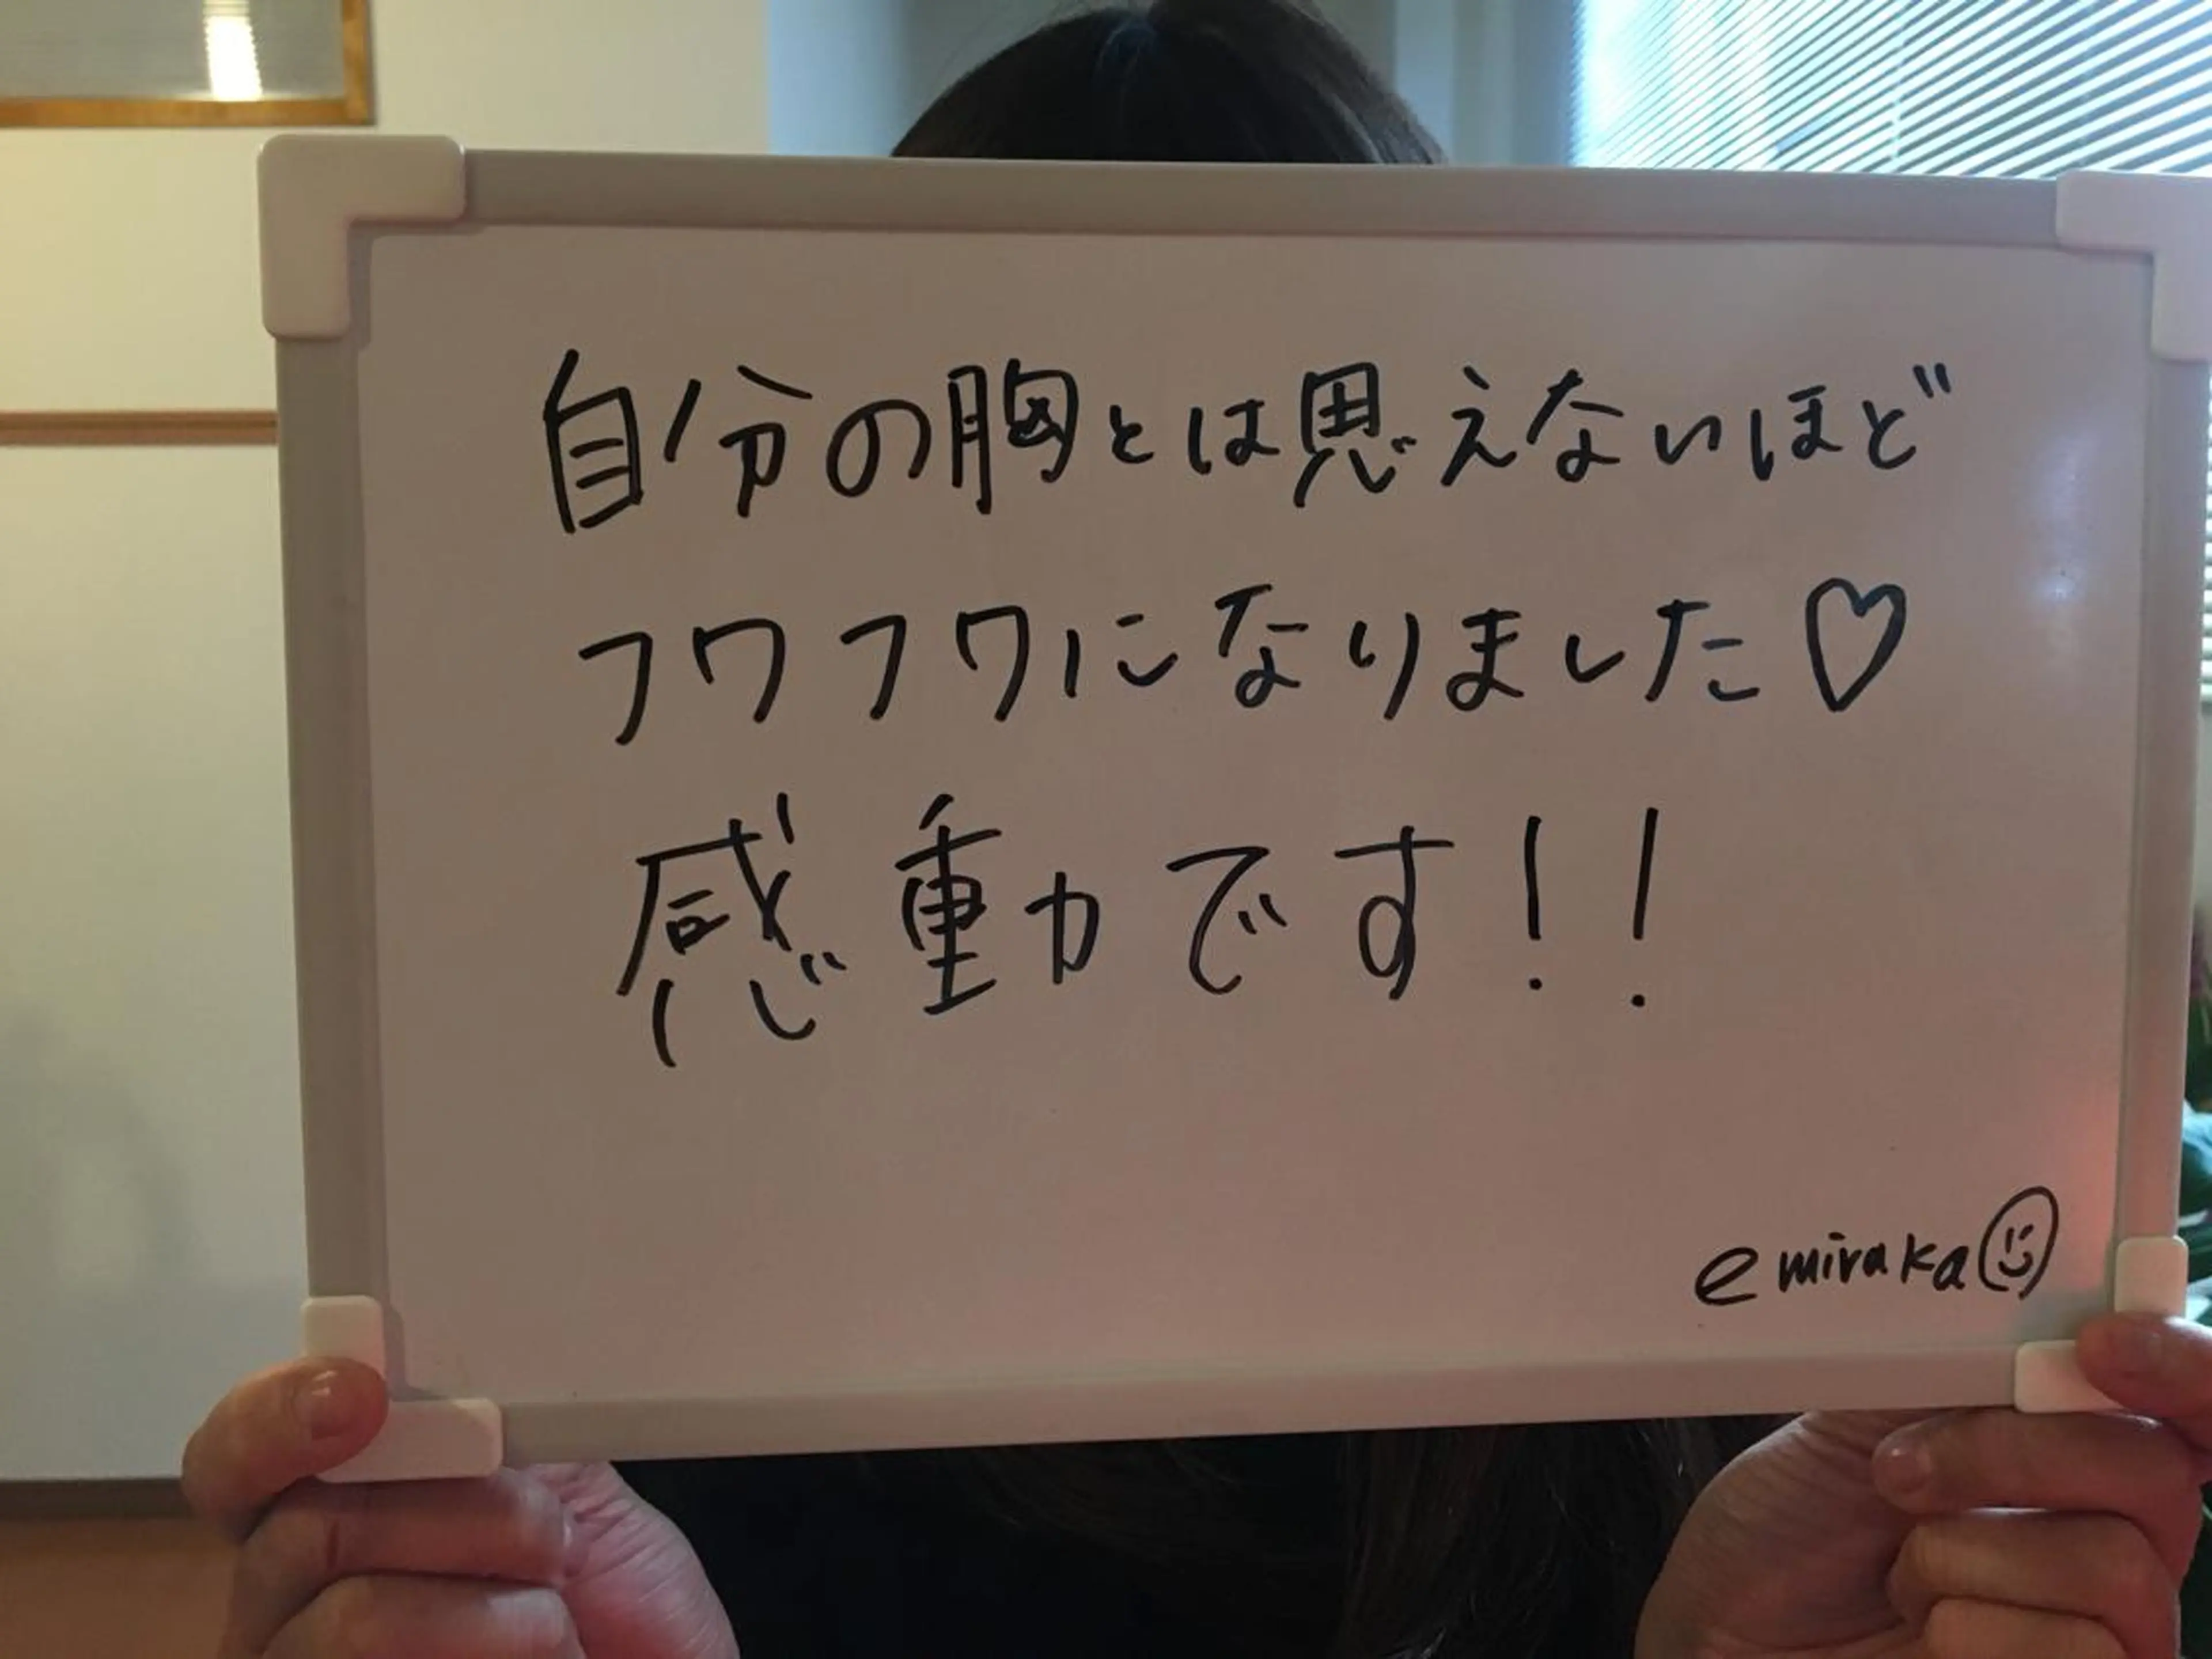 自分の胸とは思えないほど
フワフワになりました♡
感動です!!
emiraka